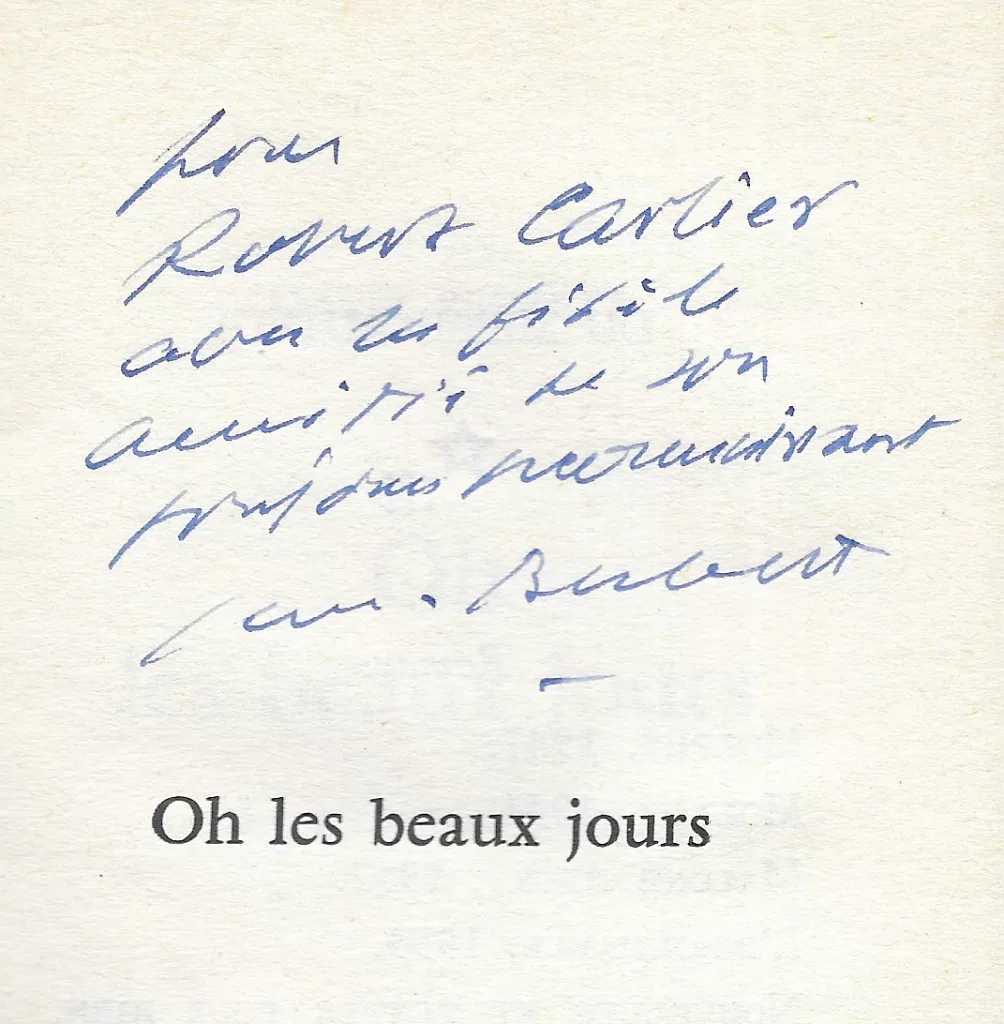 pour
Robert Carlier
avec la fidèle
amitié de son
toujours reconnaissant
Sam. Beckett
Oh les beaux jours